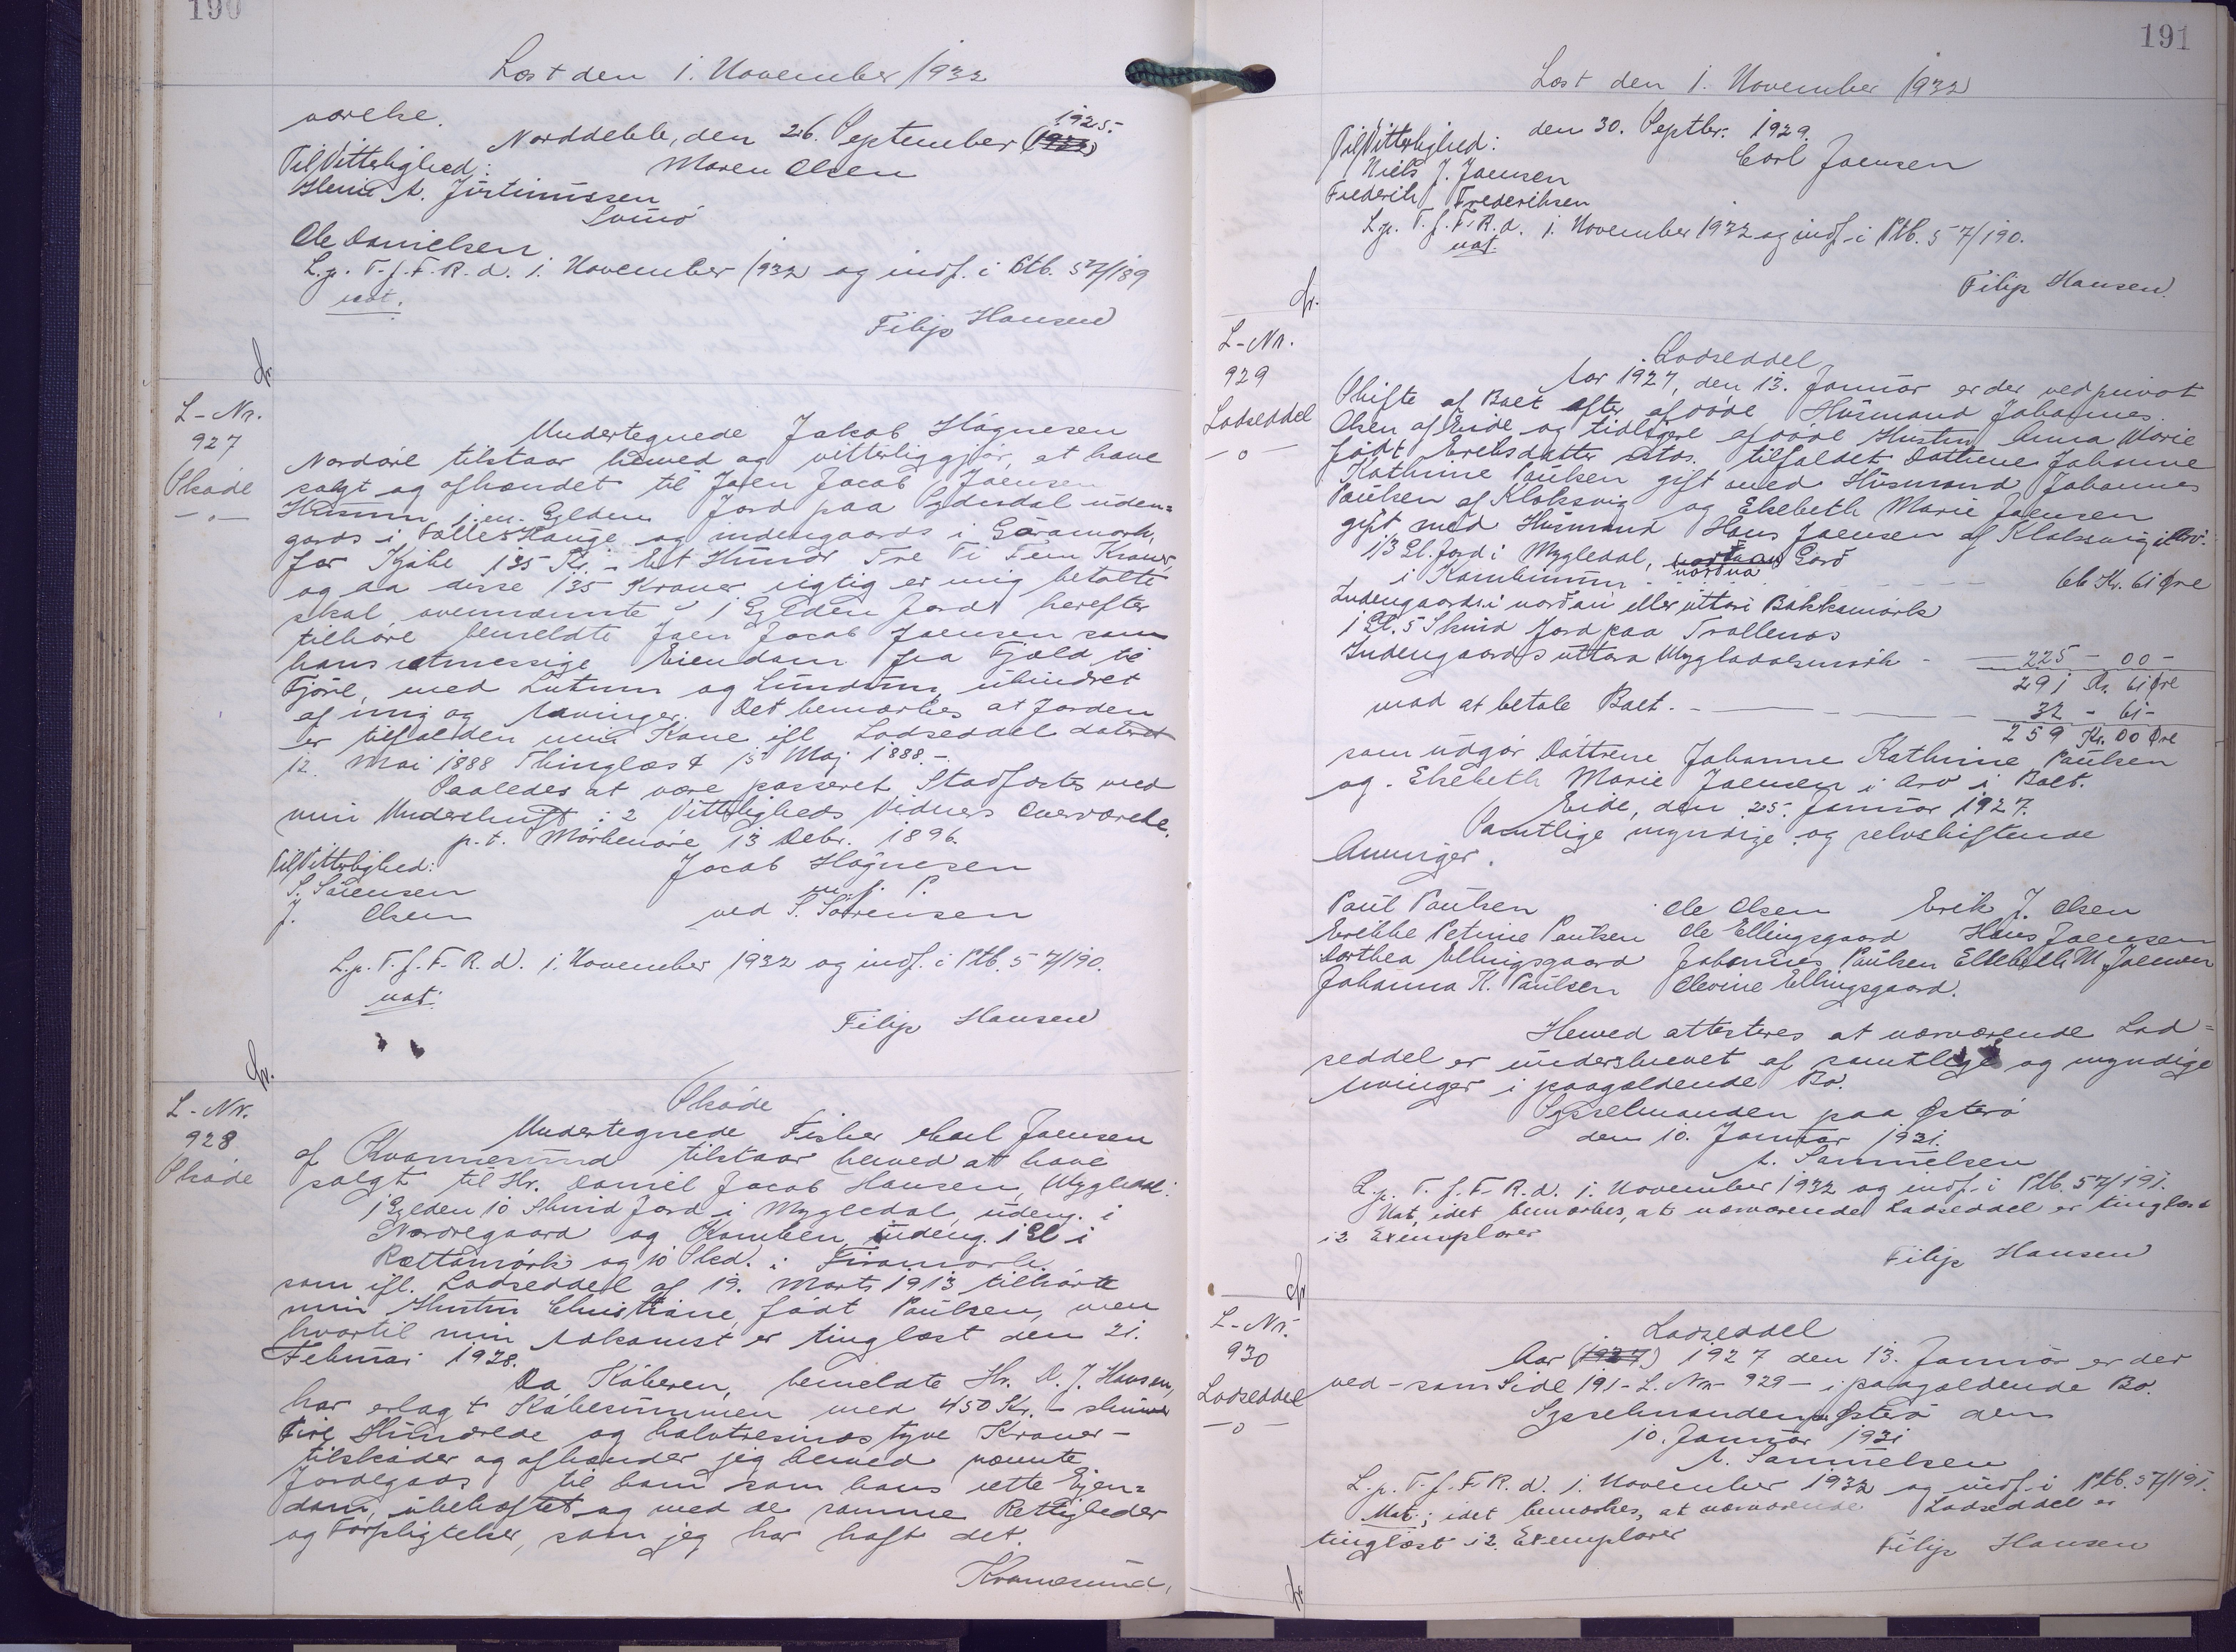 190
Læst den 1. November 1932
værelse.
Norddeble, den 26. September (1932) 1925.-
Til Vitterlighed: Maren Olsen
A. Justinussen
Svinø
Ole Danielsen
L.p. T. f. F. R. d. 1. November 1932 og indf. i Ptb. 57/189
Filip Hansen
L-Nr.
927
Skøde
Undertegnede Jakob Høgnesen
Nordøre tilstaar herved og vitterliggjør, at have
solgt og afhændet til Joen Jacob Joensen
Husum 1, en Gylden Jord paa Sydradal uden=
gards i Fælles Hauge og indengaards i Garamørk,
for Kjøbe 135 Kr. - Et Hundr Tre Ti Fem Kroner,
og da disse 135 Kroner rigtig er mig betalte
skal ovennævnte 1 Gylden Jord herefter
tilhøre bemeldte Joen Jacob Joensen som
hans retmessige Eiendom fra Fjæld til
Fjøre, med Lutum og Lundum, uhindret
af mig og Arvinger. Det bemærkes at Jorden
er tilfalden min Kone ifl. Lodseddel dateret
12. Mai 1888 Thinglæst 15 Maj 1888.-
Saaledes at være passeret Stadfæstes med
min Underskrift i 2 Vitterligheds Vidners Overværelse.
p.t. Mørkenøre 13 Debr. 1896.
Til Vitterlighed: Jacob Høgnesen
S. Sørensen m. f. P.
J. Olsen ved S. Sørensen
L.p. T. f. F. R. d. 1. November 1932 og indf. i Ptb. 57/190.
Filip Hansen
L-Nr.
928
Skøde
Skøde
Undertegnede Fisker Carl Joensen
af Kvannesund tilstaar herved at have
solgt til Hr. Daniel Jacob Hansen, Mygledal:
1 Gylden 10 Skind Jord i Mygledal, udeng. i
Nordregaard og Kamben, indeng. 1 Gl i
Rættamørk og 10 Skd. i
som ifl. Lodseddel af 19. Marts 1913 tilhørte
min Hustru Christiane, født Poulsen, men
hvortil min Adkomst er tinglæst den 21.
Februar 1928.
Da Køberen, bemeldte Hr. D. J. Hansen,
har erlagt Købesummen med 450 Kr. - skriver
Fire Hundrede og halvtresinds tyve Kroner -
tilskøder og afhænder jeg herved nævnte
Jordegods til ham som hans rette Ejen=
dom, ubehæftet og med de samme Rettigheder
og Forpligtelser, som jeg har haft det.
Kvannesund,
191
Læst den 1. November 1932
den 30. Septbr. 1929.
Til Vitterlighed: Carl Joensen
Niels J. Joensen
Frederik Frederiksen
L.p. T. f. F. R. d. 1. November 1932 og indf. i Ptb. 57/190.
Filip Hansen.
L-Nr.
929
Lodseddel
Lodseddel
Aar 1927, den 13. Januar er der ved privat
Skifte af Boet efter afdøde Husmand Johannes
Olsen af Eide og tidligere afdøde Hustru Anna Marie
født Eriksdatter tilfaldet Døttrene Johanne
Kathrine Poulsen gift med Husmand Johannes
Poulsen af Klaksvig og Elsebeth Marie Joensen
gift med Husmand Hans Joensen af Klaksvig i Arv:
1/3 Gl. Jord i Mygledal, Gard
i Kambinum - 66 Kr. 61 Øre
Indengaards i nordari eller uttari Bakkamørk
1 Gl. 5 Skind Jord paa Trøllenæs
Indengaards uttara Mygladalsmørk - 225 - 00 -
291 Kr. 61 Øre
mod at betale Boet. - 32 - 61 -
259 Kr. 00 Øre
som udgør Døttrene Johanne Kathrine Poulsen
og Elsebeth Marie Joensen i Arv i Boet.
Eide, den 25. Januar 1927.
Samtlige myndige og selvskiftende
Arvinger.
Poul Poulsen Ole Olsen Erik J. Olsen
Petrine Poulsen Ole Ellingsgaard Hans Joensen
Dorthea Ellingsgaard Johannes Poulsen Elsebeth M Joensen
Johanna K. Poulsen Olevine Ellingsgaard.
Herved attesteres at nærværende Lod=
seddel er underskrevet af samtlige og myndige
Arvinger i paagældende Bo.
Sysselmanden paa Østerø
den 10. Januar 1931.
A. Samuelsen
L.p. T. f. F. R. d. 1. November 1932 og indf. i Ptb. 57/191.
Not, idet bemærkes, at nærværende Lodseddel er tinglæst
i 2 Exemplarer
Filip Hansen
L-Nr.
930
Lodseddel
Lodseddel
Aar (1927) 1927 den 13. Januar er der
ved - som Side 191 - L. Nr. 929 - i paagældende Bo.
Sysselmanden p. Østerø den
10. Januar 1931
A. Samuelsen
L.p. T. f. F. R. d. 1. November 1932 og indf. i Ptb. 57/191.
Not; idet bemærkes, at nærværende Lodseddel er
tinglæst i 2. Exemplarer
Filip Hansen